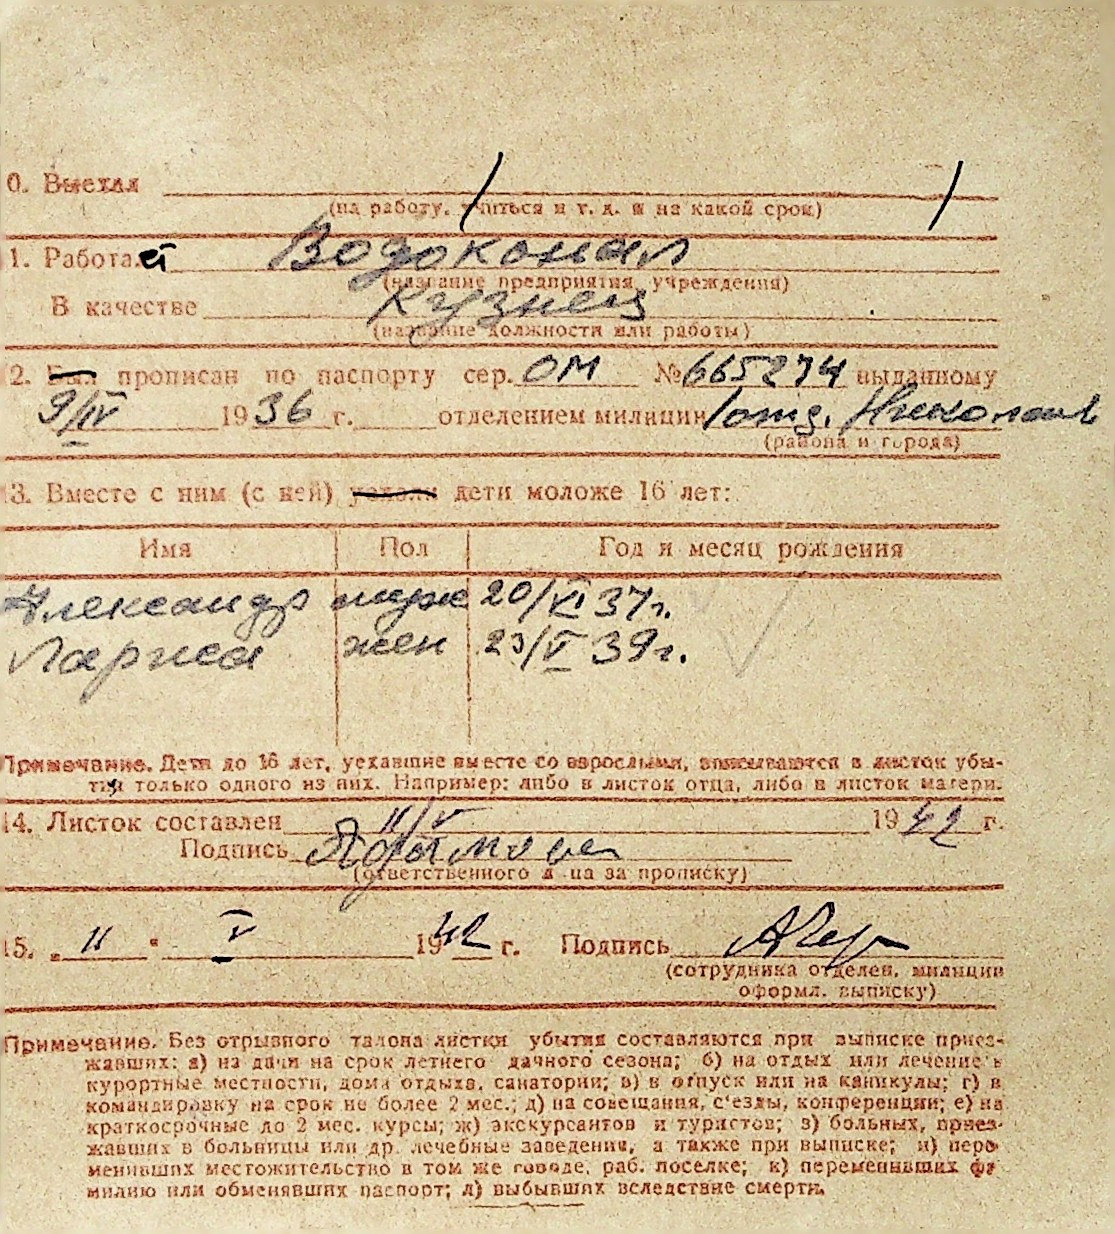 0. Выехал
(на работу, учиться и т. д. и на какой срок)
1. Работает Водоканал
(название предприятия, учреждения)
В качестве Кузнец
(название должности или работы)
2. Был прописан по паспорту сер. ОМ № 665274 выданному
9/IV 1936 г. отделением милиции 1 отд. Николаев
(района и города)
3. Вместе с ним (с ней) уехали дети моложе 16 лет:
Имя Пол Год и месяц рождения
Александр муж 20/VI 37 г.
Лариса жен 23/V 39 г.
Примечание. Дети до 16 лет, уехавшие вместе со взрослыми, вписываются в листок убы-
тия только одного из них. Например: либо в листок отца, либо в листок матери.
14. Листок составлен 11/V 1942 г.
Подпись
(ответственного лица за прописку)
15. „ 11 “ V 1942 г. Подпись
(сотрудника отделен. милиции
оформл. выписку)
Примечание. Без отрывного талона листки убытия составляются при выписке приез-
жавших: а) на дачи на срок летнего дачного сезона; б) на отдых или лечение в
курортные местности, дома отдыха, санатории; в) в отпуск или на каникулы; г) в
командировку на срок не более 2 мес.; д) на совещания, с'езды, конференции; е) на
краткосрочные до 2 мес. курсы; ж) экскурсантов и туристов; з) больных, приез-
жавших в больницы или др. лечебные заведения, а также при выписке; и) пере
менивших местожительство в том же городе, раб. поселке; к) переменивших фа
милию или обменявших паспорт; л) выбывших вследствие смерти.